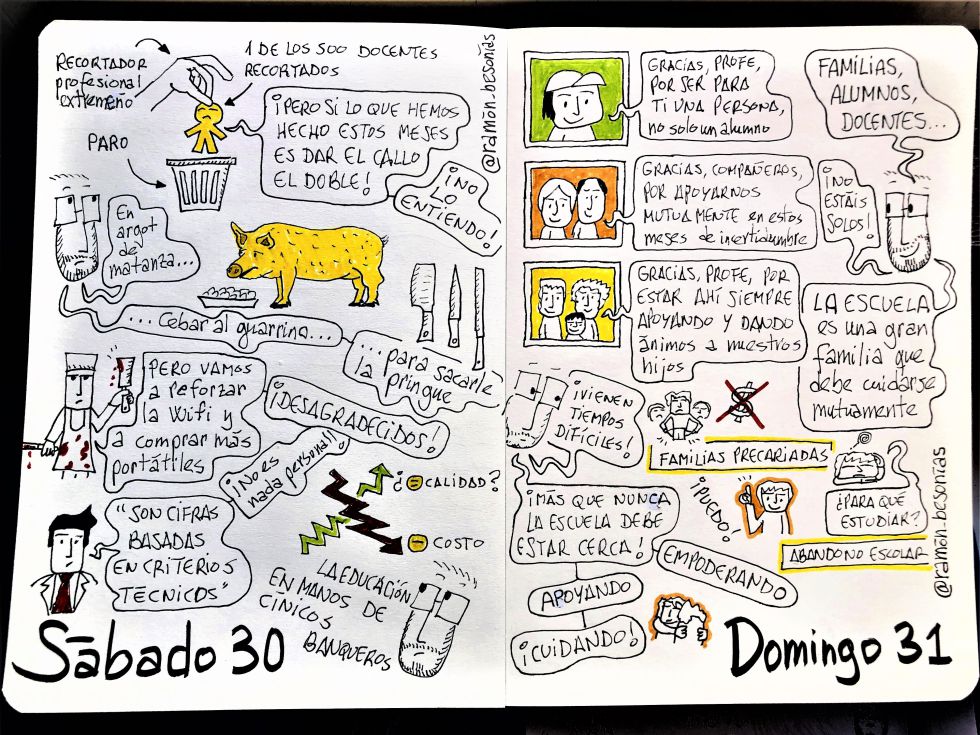 RECORTADOR
profesional
extremeño
1 DE LOS 500 DOCENTES
RECORTADOS
@ramōn.besonías
PARO
¡PERO SI LO QUE HEMOS
HECHO ESTOS MESES
ES DAR EL CALLO
EL DOBLE!
¡NO
LO
ENTIENDO!
En
argot
de
matanza...
...cebar al guarrino...
...para sacarle
la pringue
PERO VAMOS
a reforzar
la Wifi y
a comprar más
portátiles
¡DESAGRADECIDOS!
¡No es
nada personal!
¿CALIDAD?
COSTO
"SON CIFRAS
BASADAS
EN CRITERIOS
TÉCNICOS"
LA EDUCACIÓN
EN MANOS DE
CÍNICOS
BANQUEROS
Sābado 30
GRACIAS, PROFE,
POR SER PARA
TI UNA PERSONA,
no solo un alumno
FAMILIAS,
ALUMNOS,
DOCENTES...
GRACIAS, COMPAÑEROS,
POR APOYARNOS
MUTUAMENTE en estos
meses de incertidumbre
¡NO
ESTÁIS
SOLOS!
GRACIAS, PROFE, POR
ESTAR AHÍ SIEMPRE
APOYANDO Y DANDO
ánimos a nuestros
hijos
LA ESCUELA
es una gran
familia que
debe cuidarse
mutuamente
¡VIENEN
TIEMPOS
DIFÍCILES!
$
FAMILIAS PRECARIADAS
¡PUEDO!
¿PARA QUÉ
ESTUDIAR?
ABANDONO ESCOLAR
@ramōn.besonías
¡MÁS QUE NUNCA
LA ESCUELA DEBE
ESTAR CERCA!
EMPODERANDO
APOYANDO
¡CUIDANDO!
Domingo 31